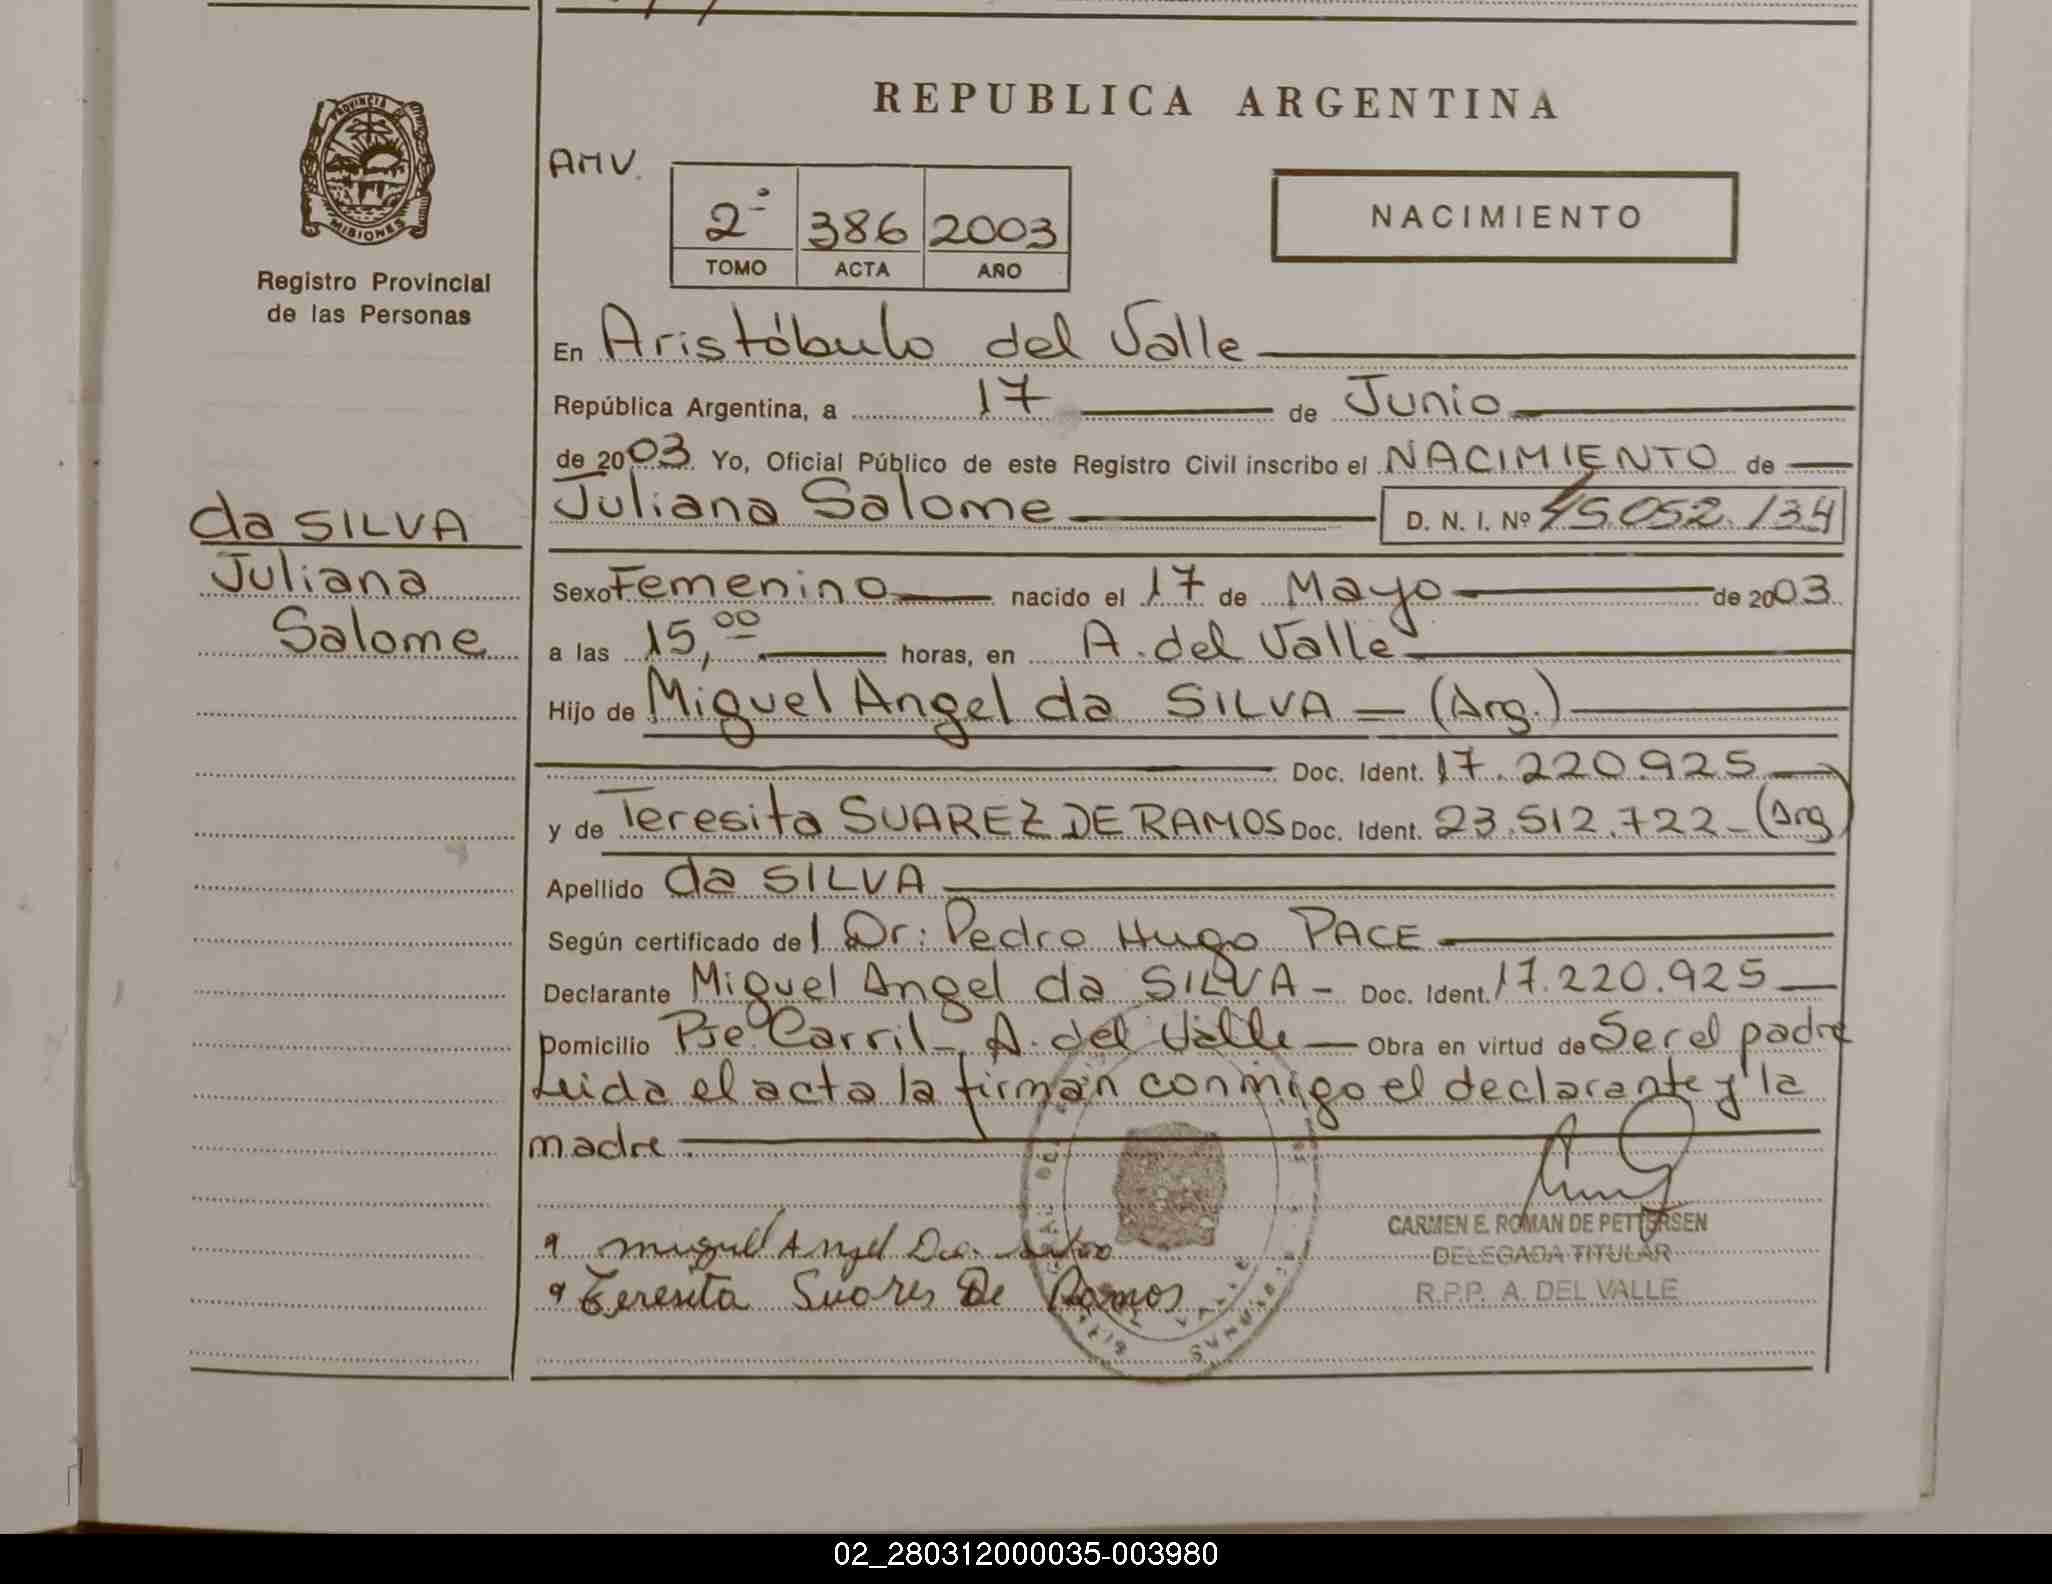 REPUBLICA ARGENTINA
PROVINCIA DE
MISIONES
Registro Provincial
de las Personas
AMV.
2º 386 2003
TOMO ACTA AÑO
NACIMIENTO
En Aristóbulo del Valle
República Argentina, a 17 de Junio
de 2003. Yo, Oficial Público de este Registro Civil inscribo el NACIMIENTO de
Juliana Salome D. N. I. Nº 45.052.134
da SILVA
Juliana
Salome
Sexo Femenino nacido el 17 de Mayo de 2003
a las 15,00 horas, en A. del Valle
Hijo de Miguel Angel da SILVA - (Arg.)
Doc. Ident. 17.220.925
y de Teresita SUAREZ DE RAMOS Doc. Ident. 23.512.722 - (Arg)
Apellido da SILVA
Según certificado del Dr: Pedro Hugo PACE
Declarante Miguel Angel da SILVA - Doc. Ident. 17.220.925
Domicilio Pje Carril - A. del Valle - Obra en virtud de Ser el padre
Leida el acta la firman conmigo el declarante y la
madre.
Miguel Angel Da
Teresita Suares De Ramos
CARMEN E. ROMAN DE PETTERSEN
DELEGADA TITULAR
R.P.P. A. DEL VALLE
02_280312000035-003980